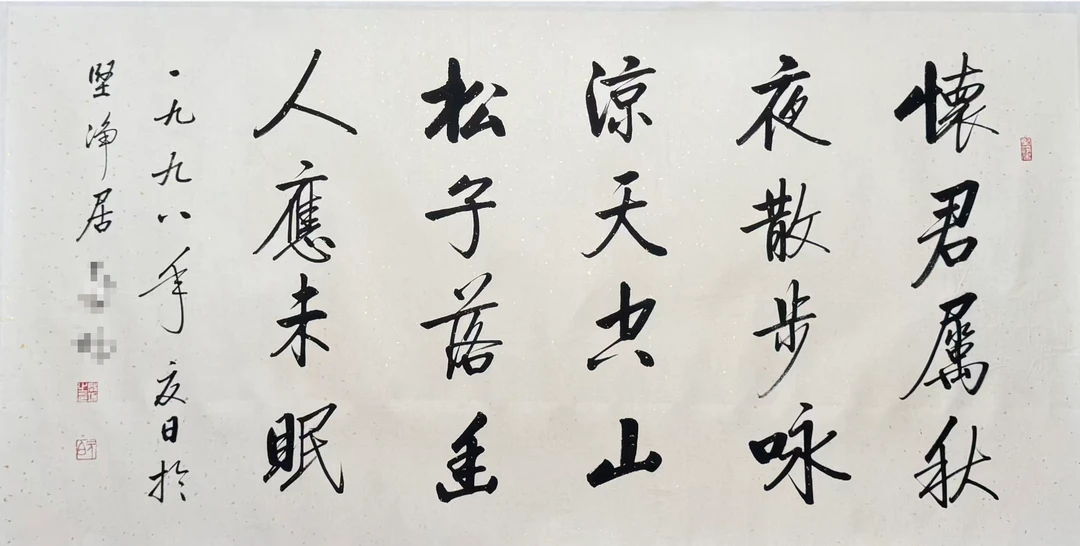 懷君屬秋
夜散步咏
涼天空山
松子落幽
人應未眠
一九九八年夏日於
堅淨居